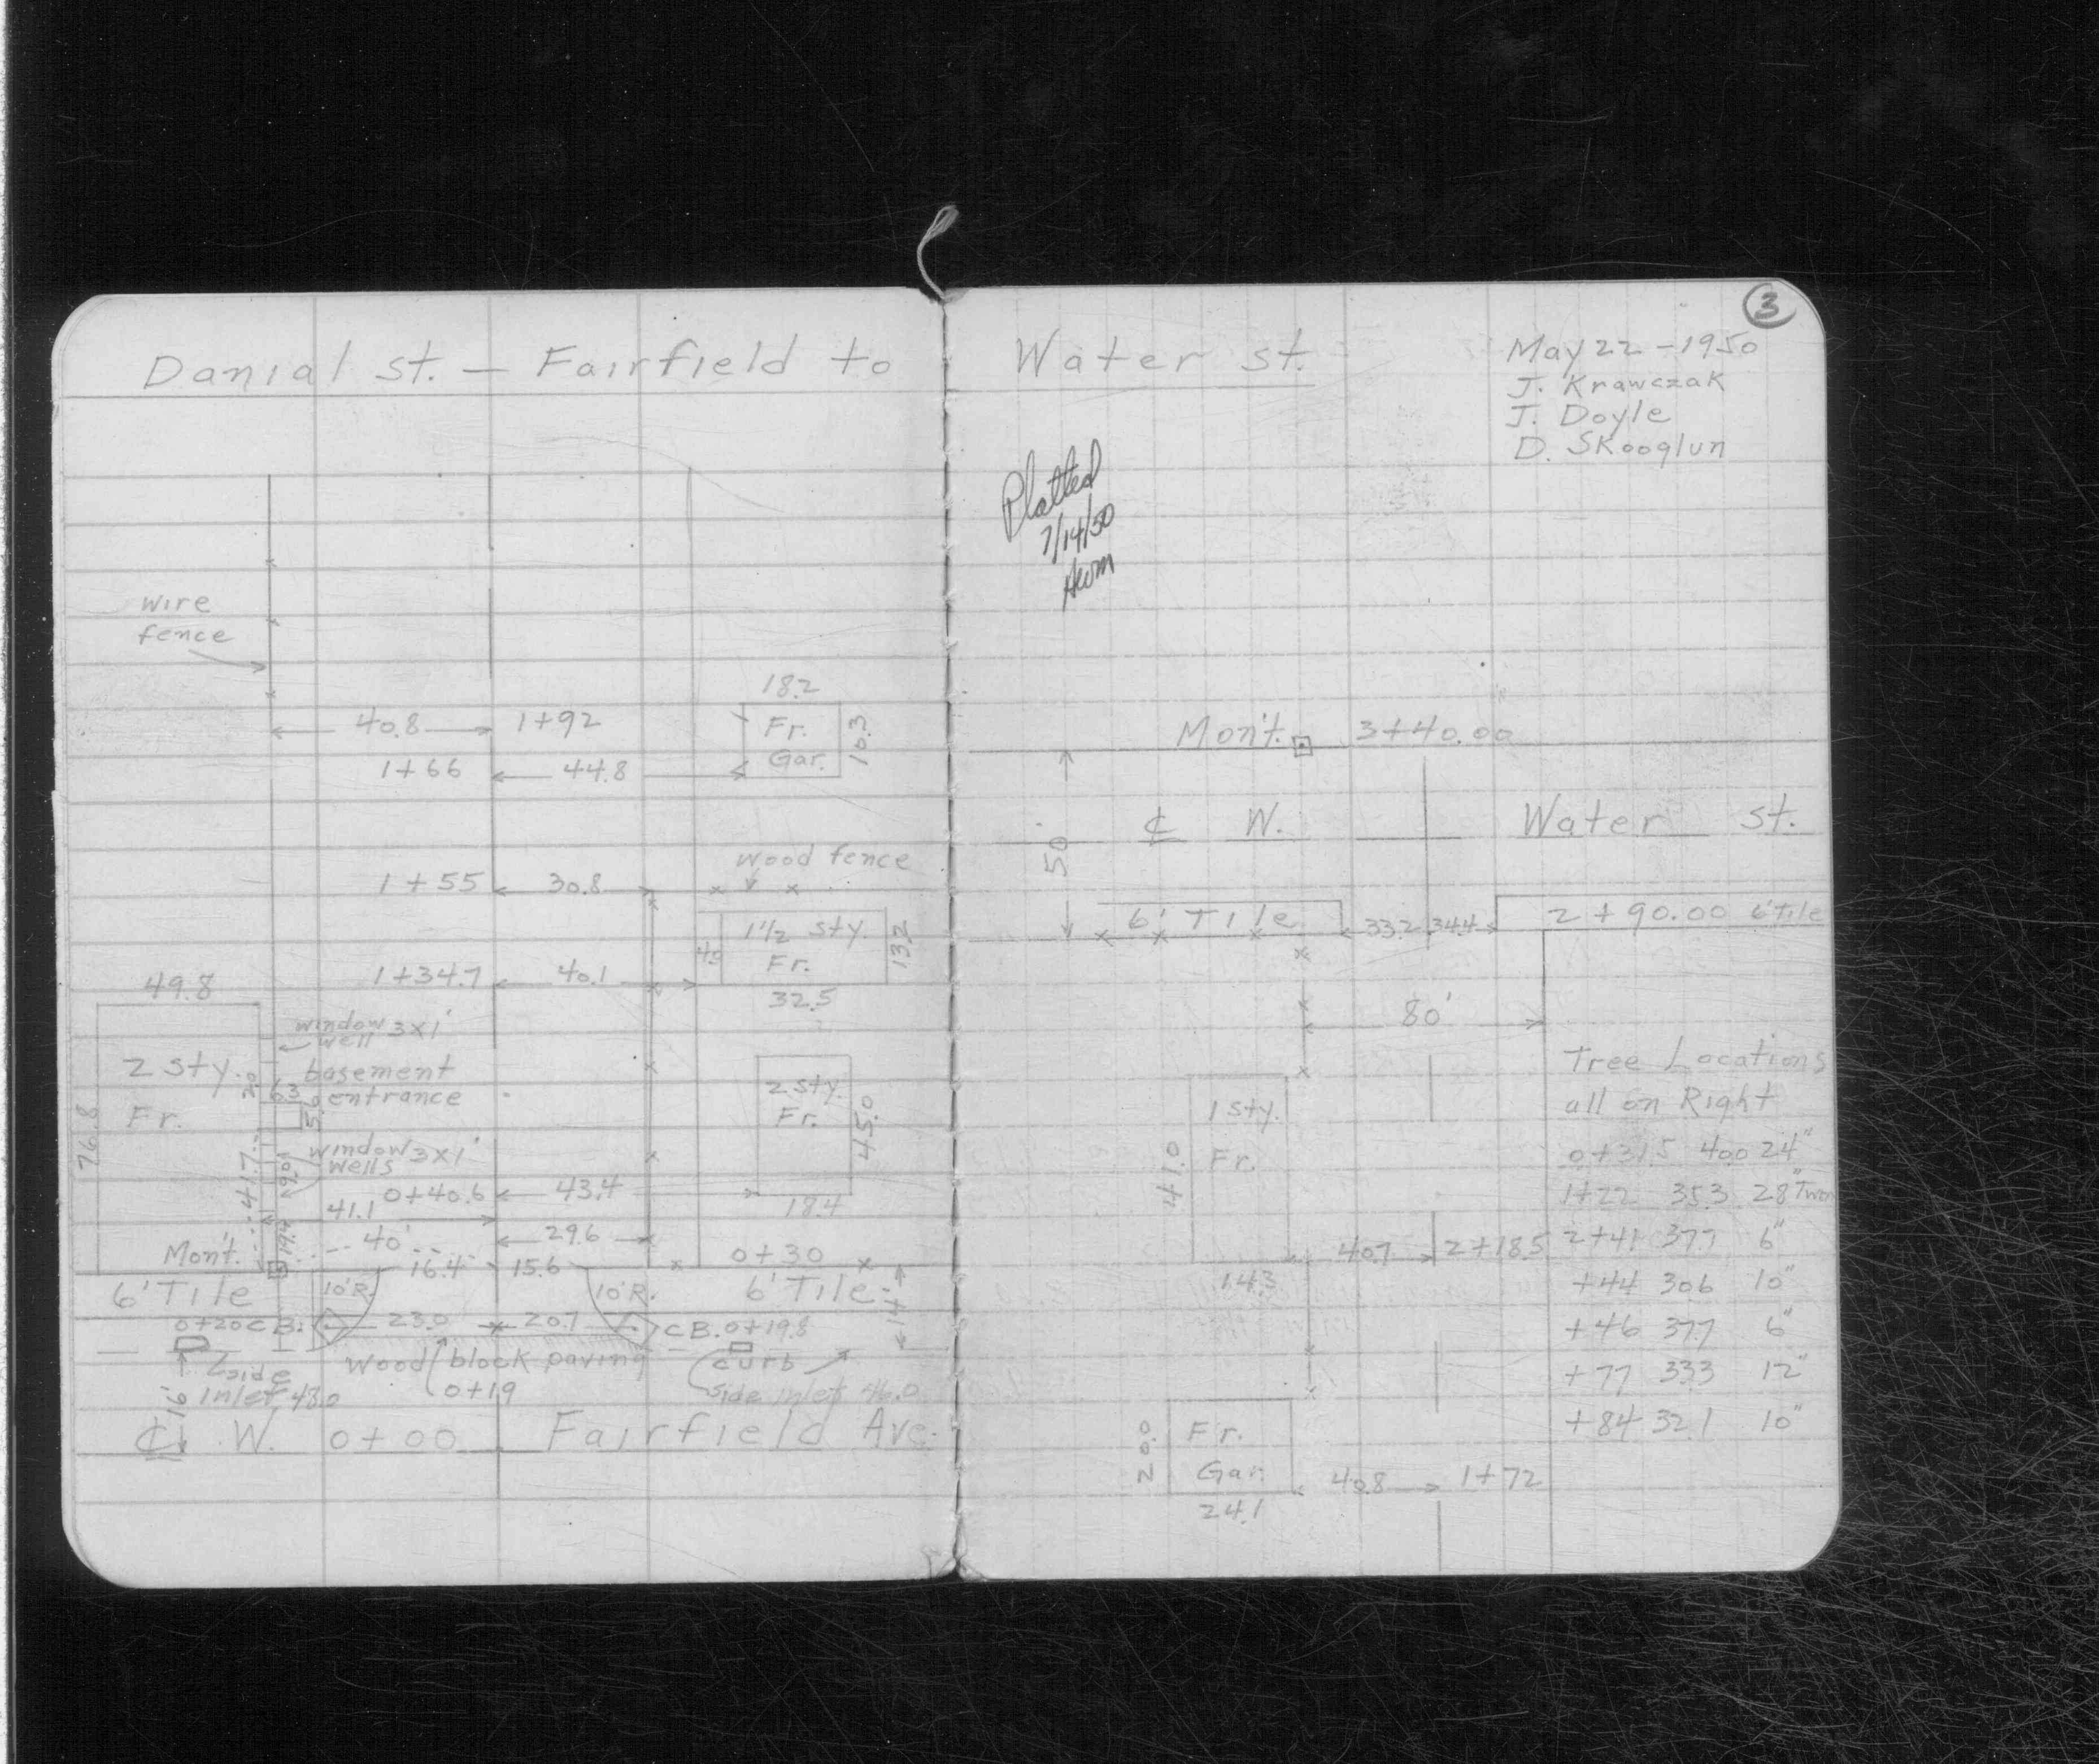 3
Danial st. — Fairfield to Water st.
May 22 - 1950
J. Krawczak
J. Doyle
D. Skooglun
Platted
7/14/50
wire
fence
18.2
40.8 1+92
Fr.
Gar.
10.3
1+66 44.8
wood fence
1+55 30.8
1 1/2 sty.
Fr.
13.2
1+34.7 40.1
32.5
49.8
window 3x1'
well
2 sty.
Fr.
76.8
basement
entrance
6.3
5.6
2 sty.
Fr.
45.0
window 3x1'
wells
41.7
0+40.6 43.4
18.4
41.1
29.6
40'
19.4
Mon't.
16.4 15.6
0+30
6' Tile
10'R.
10'R.
6' Tile
14'
0+20 C.B. 23.0 20.7 C.B. 0+19.8
side
inlet 43.0
Wood block paving
0+19
curb
side inlet 46.0
16'
℄ W. 0+00 Fairfield Ave.
Mon't. 3+40.00
50'
℄ W. Water st.
6' Tile 33.2 34.4 2+90.00 6' Tile
80'
1 sty.
Fr.
41.0
40.7 2+18.5
14.3
Fr.
Gar.
20.0
40.8 1+72
24.1
Tree Locations
all on Right
0+31.5 40.0 24"
1+22 35.3 28" Twin
2+41 37.7 6"
+44 30.6 10"
+46 37.7 6"
+77 33.3 12"
+84 32.1 10"